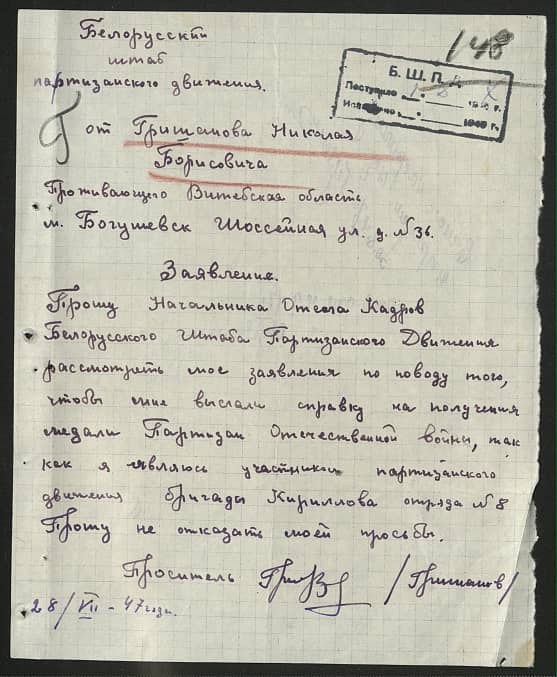 Белорусский
штаб
партизанского движения.
148
Б. Ш. П. Д.
Поступило
194 г.
1949 г.
От Гришанова Николая
Борисовича
Проживающего Витебская область
м. Богушевск Шоссейная ул. д. №36.
Заявление.
Прошу Начальника Отдела Кадров
Белорусского Штаба Партизанского Движения
рассмотреть мое заявления по поводу того,
чтобы мне выслали справку на получения
медали Партизан Отечественной войны, так
как я являюсь участником партизанского
движения бригады Кириллова отряда №8
Прошу не отказать моей просьбы.
Проситель /Гришанов/
28/VII - 47 года.